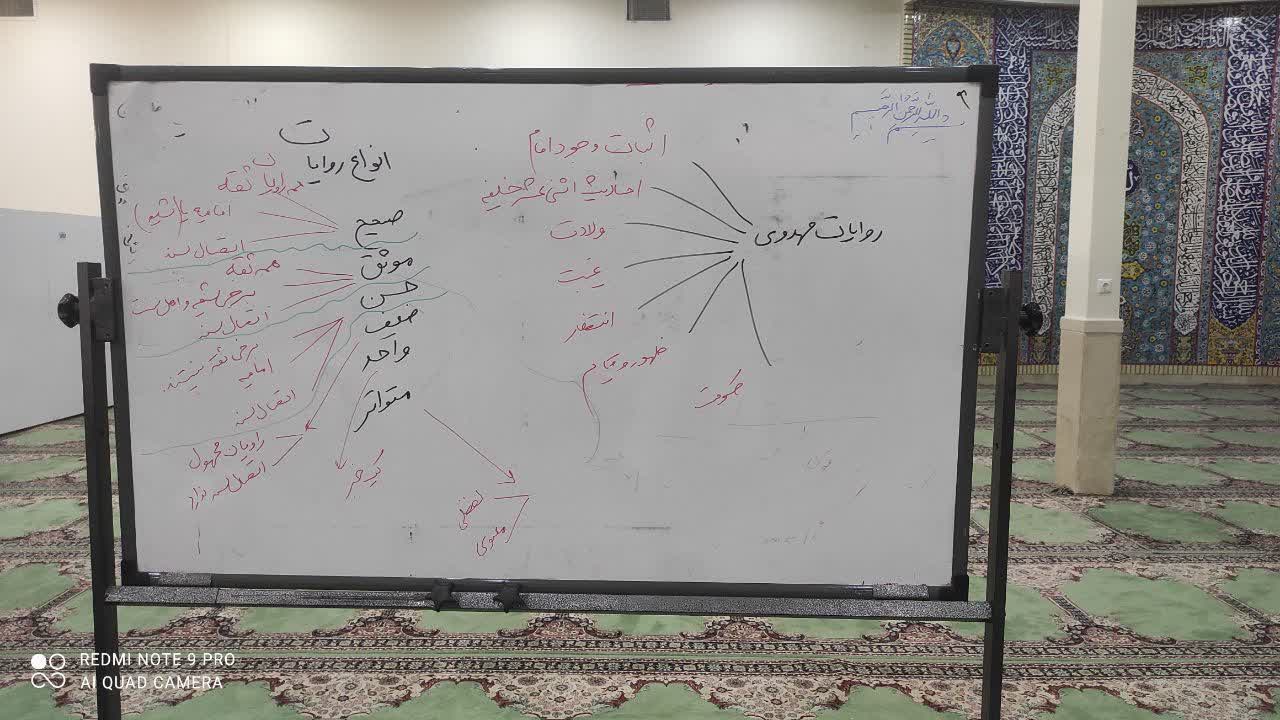 بسم الله الرحمن الرحیم
روایات مهدوی
اثبات وجود امام
احادیث اثنی عشر خلیفه
ولادت
غیبت
انتظار
ظهور و قیام
حکومت
انواع روایات
صحیح
همه راویان ثقه
امامیه یا (شیعه)
اتصال سند
موثق
همه ثقه
برخی شیعه و اهل سنت
اتصال سند
حسن
برخی ثقه نیستند
امامیه
اتصال سند
ضعیف
راویان مجهول
اتصال سند ندارد
واحد
یک خبر
متواتر
لفظی
معنوی
REDMI NOTE 9 PRO
AI QUAD CAMERA